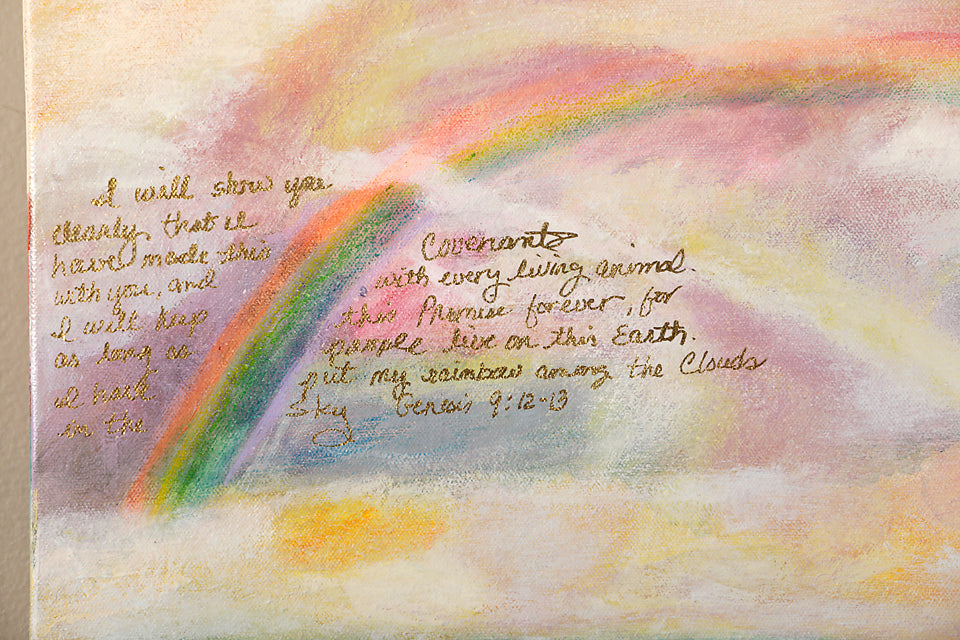 I will show you
clearly that I
have made this Covenants
with you, and with every living animal.
I will keep this Promise forever, for
as long as people live on this Earth.
I put my rainbow among the Clouds
in the Sky Genesis 9:12-13